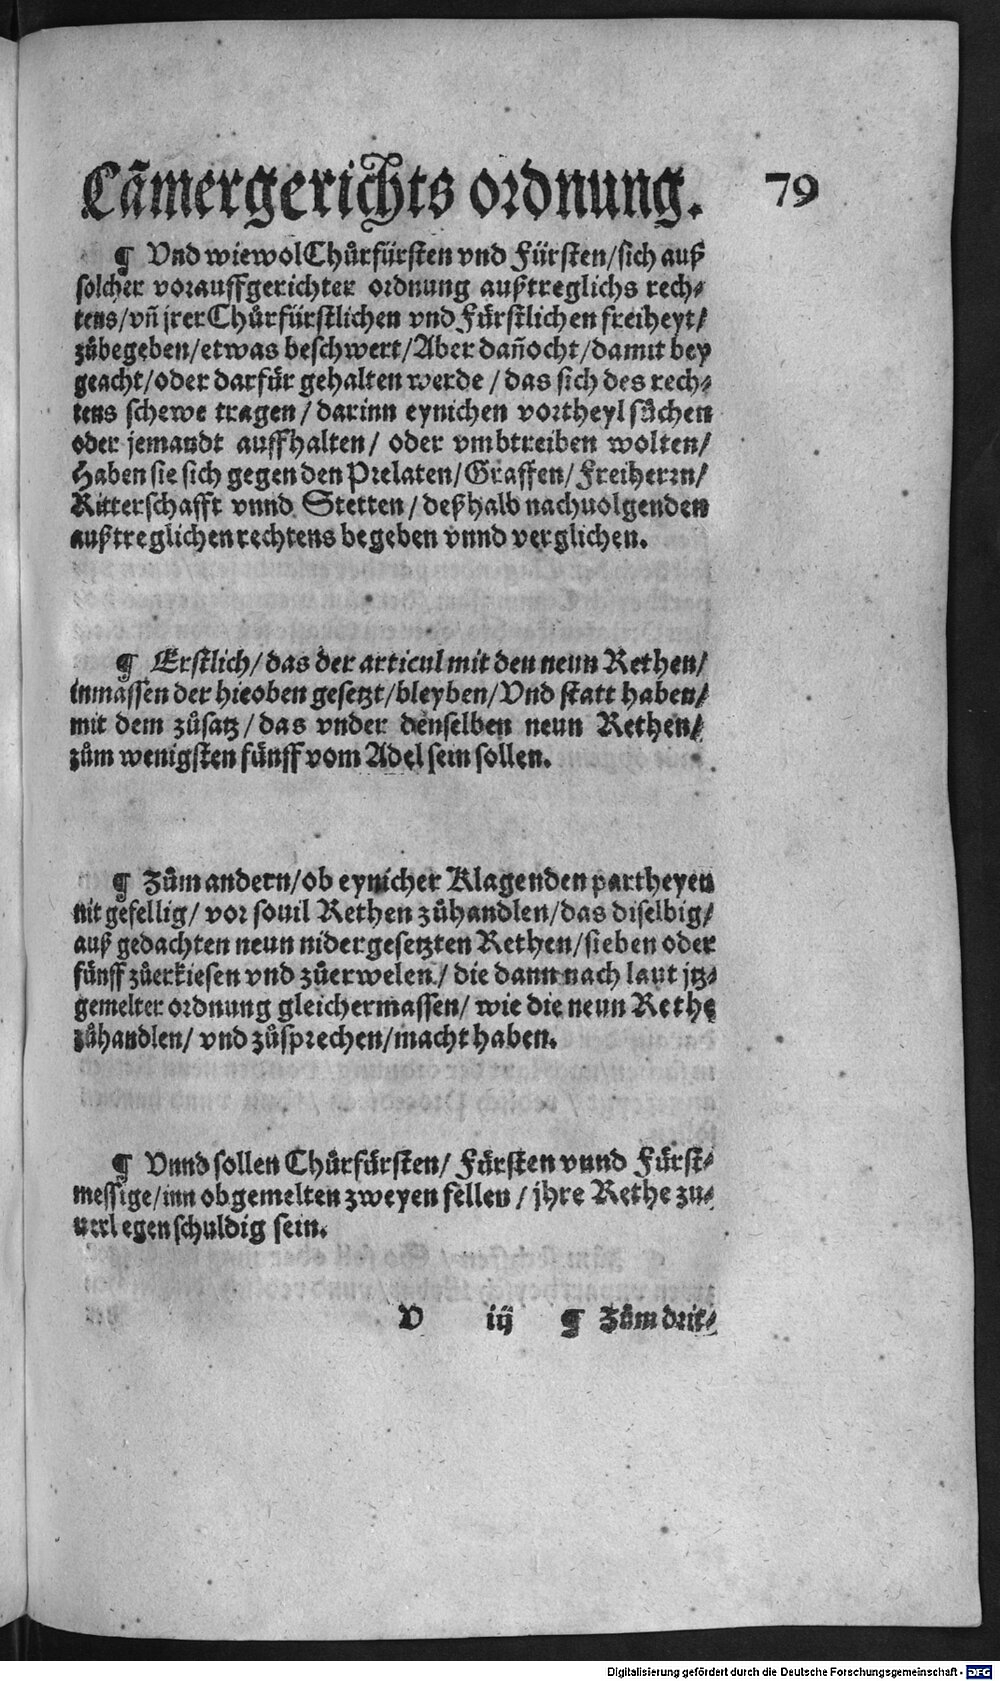 Cãmergerichts ordnung. 79
¶ Vnd wiewol Chůrfürsten vnd Fürsten/sich auß
solcher vorauffgerichter ordnung außtreglichs rech⸗
tens/vñ jrer Chůrfürstlichen vnd Fürstlichen freiheyt/
zůbegeben/etwas beschwert/Aber dañocht/damit bey
geacht/oder darfür gehalten werde/das sich des rech⸗
tens schewe tragen/darinn eynichen vortheyl sůchen
oder jemandt auffhalten/oder vmbtreiben wolten/
Haben sie sich gegen den Prelaten/Graffen/Freiherrn/
Ritterschafft vnnd Stetten/deßhalb nachuolgenden
außtreglichen rechtens begeben vnnd verglichen.
¶ Erstlich/das der articul mit den neun Rethen/
inmassen der hieoben gesetzt/bleyben/Vnd statt haben/
mit dem zůsatz/das vnder denselben neun Rethen/
zům wenigsten fünff vom Adel sein sollen.
¶ Zům andern/ob eynicher Klagenden partheyen
nit gefellig/vor souil Rethen zůhandlen/das diselbig/
auß gedachten neun nidergesetzten Rethen/sieben oder
fünff zůerkiesen vnd zůerwelen/die dann nach laut jtz⸗
gemelter ordnung gleichermassen/wie die neun Rethe
zůhandlen/vnd zůsprechen/macht haben.
¶ Vnnd sollen Chůrfürsten/Fürsten vnnd Fürst⸗
messige/inn obgemelten zweyen fellen/jhre Rethe zu⸗
uerlegen schuldig sein.
V iij ¶ Zům drit⸗
Digitalisierung gefördert durch die Deutsche Forschungsgemeinschaft - DFG